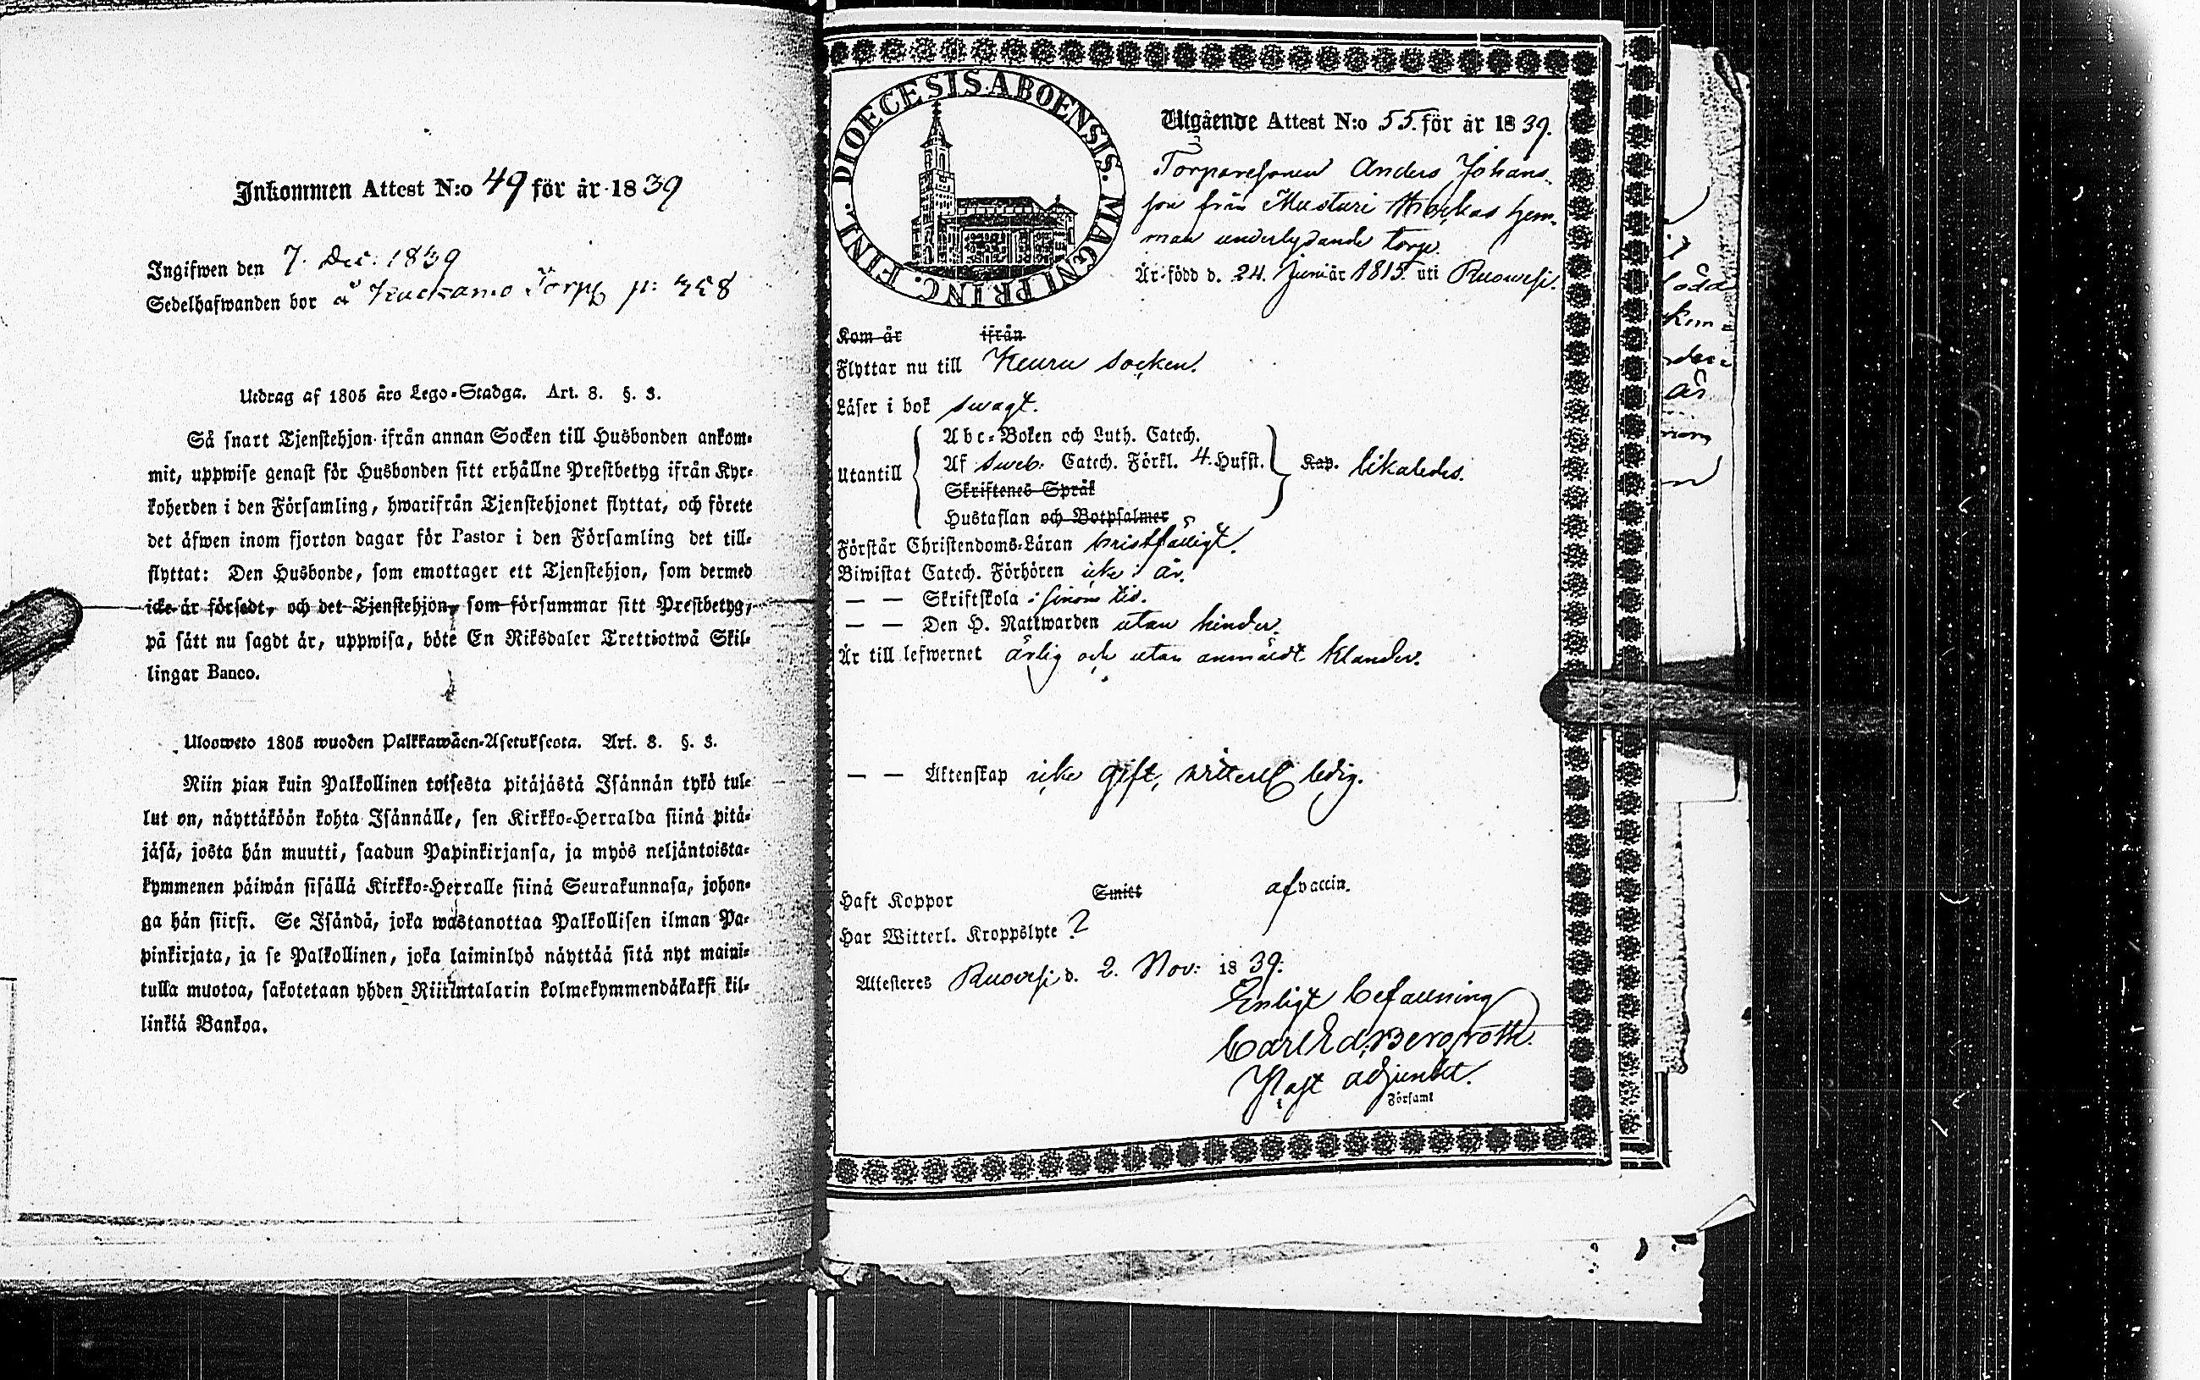 Inkommen Attest N:o 49 för år 1839
Ingifwen den 7. Dec: 1839
Sedelhafwanden bor å Torp p: 358
Utdrag af 1805 års Lego-Stadga. Art. 8. §. 3.
Så snart Tjenstehjon ifrån annan Socken till Husbonden ankom-
mit, uppwise genast för Husbonden sitt erhållne Prestbetyg ifrån Kyr-
koherden i den Församling, hwarifrån Tjenstehjonet flyttat, och förete
det äfwen inom fjorton dagar för Pastor i den Församling det till-
flyttat: Den Husbonde, som emottager ett Tjenstehjon, som dermed
icke är försedt, och det Tjenstehjon, som försummar sitt Prestbetyg,
på sätt nu sagdt är, uppwisa, böte En Riksdaler Trettiotwå Skil-
lingar Banco.
Ulosweto 1805 wuoden Palkkawäen-Asetuksesta. Art. 8. §. 3.
Niin pian kuin Palkollinen toisesta pitäjästä Isännän tykö tul-
lut on, näyttäköön kohta Isännälle, sen Kirkko-Herralda siinä pitä-
jäsä, josta hän muutti, saadun Papinkirjansa, ja myös neljäntoista-
kymmenen päiwän sisällä Kirkko-Herralle siinä Seurakunnasa, johon-
ga hän siirsi. Se Isändä, joka wastanottaa Palkollisen ilman Pa-
pinkirjata, ja se Palkollinen, joka laiminlyö näyttää sitä nyt maini-
tulla muotoa, sakotetaan yhden Riikintalarin kolmekymmendäkaksi kil-
linkiä Bankoa.
DIOECESIS ABOENSIS. MAGNI PRINC. FINL.
Utgående Attest N:o 55. för år 1839.
Torparesonen Anders Johans-
son från Mustari hem-
man underlydande torp.
Är född d. 24. Juni år 1815. uti Ruowesi.
Kom år ifrån
Flyttar nu till Keuru Socken.
Läser i bok swagt.
Utantill
Abc-Boken och Luth. Catech.
Af Sweb. Catech. Förkl. 4. Hufst.
Skriftenes Språk
Hustaflan och Botpsalmer
Kap. likaledes.
Förstår Christendoms-Läran bristfälligt.
Biwistat Catech. Förhören icke i år.
— — Skriftskola i sinom tid.
— — Den H. Nattwarden utan hinder.
Är till lefwernet ärlig och utan anmäldt klander.
— — Äktenskap icke gift, witterl. ledig.
Haft Koppor Smitt af vaccin.
Har Witterl. Kroppslyte ?
Attesteres Ruowesi d. 2. Nov: 1839.
Enligt befallning
Carl Ed. Bergroth.
Past adjunkt.
Församl